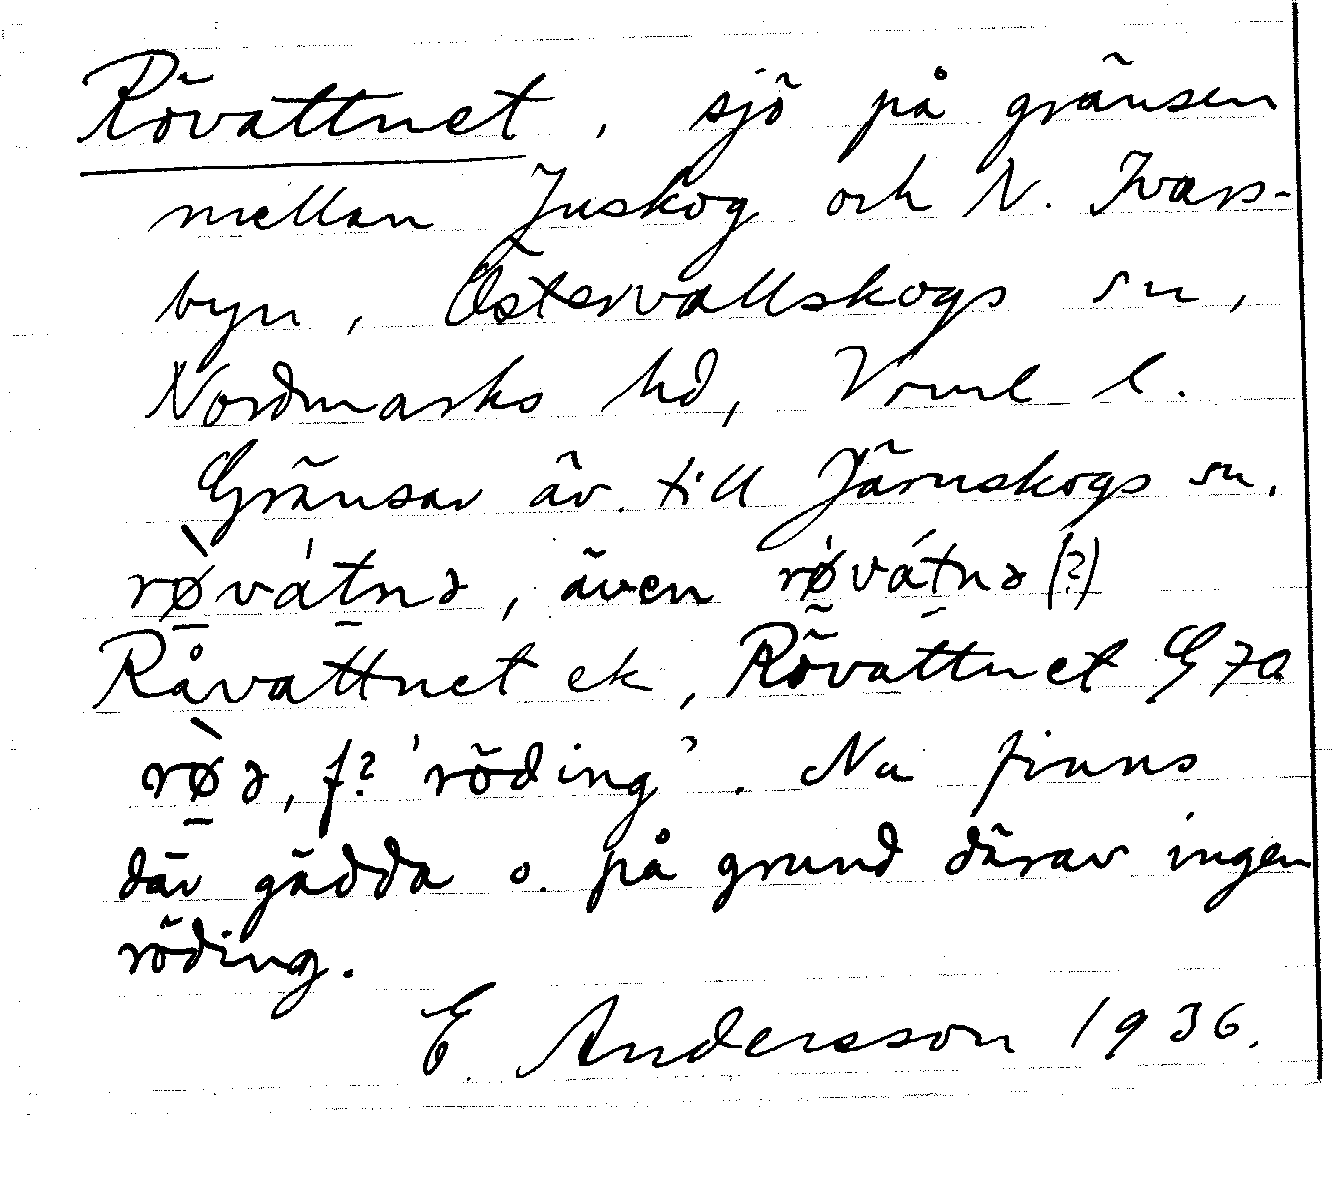 Rövattnet, sjö på gränsen
mellan Juskog och N. Ivars-
byn, Östervallskogs sn,
Nordmarks hd, Vrml l.
Gränsar äv. till Järnskogs sn.
rø̱̀vát̠nə, även rø̱̀vát̠nə (?)
Råvattnet ek, Rövattnet G 70.
rø̱̀ə, f? 'röding'. Nu finns
där gädda o. på grund därav ingen
röding.
E. Andersson 1936.